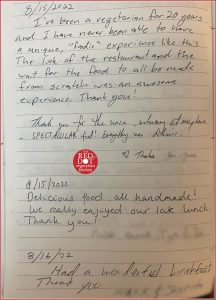 8/15/2022
I've been a vegetarian for 20 years
and I have never been able to have
a unique, "foodie" experience like this.
The look of the restaurant and the
wait for the food to all be made
from scratch was an awesome
experience. Thank you!
Thank you for the warm, welcoming atmosphere
SPECTACULAR food! Everything was delicious.
Thanks
RED HOT
vegetarian
8/15/2022
Delicious food, all handmade!
We really enjoyed our late lunch
Thank you!
8/16/22
Had a wonderful breakfast
Thank you